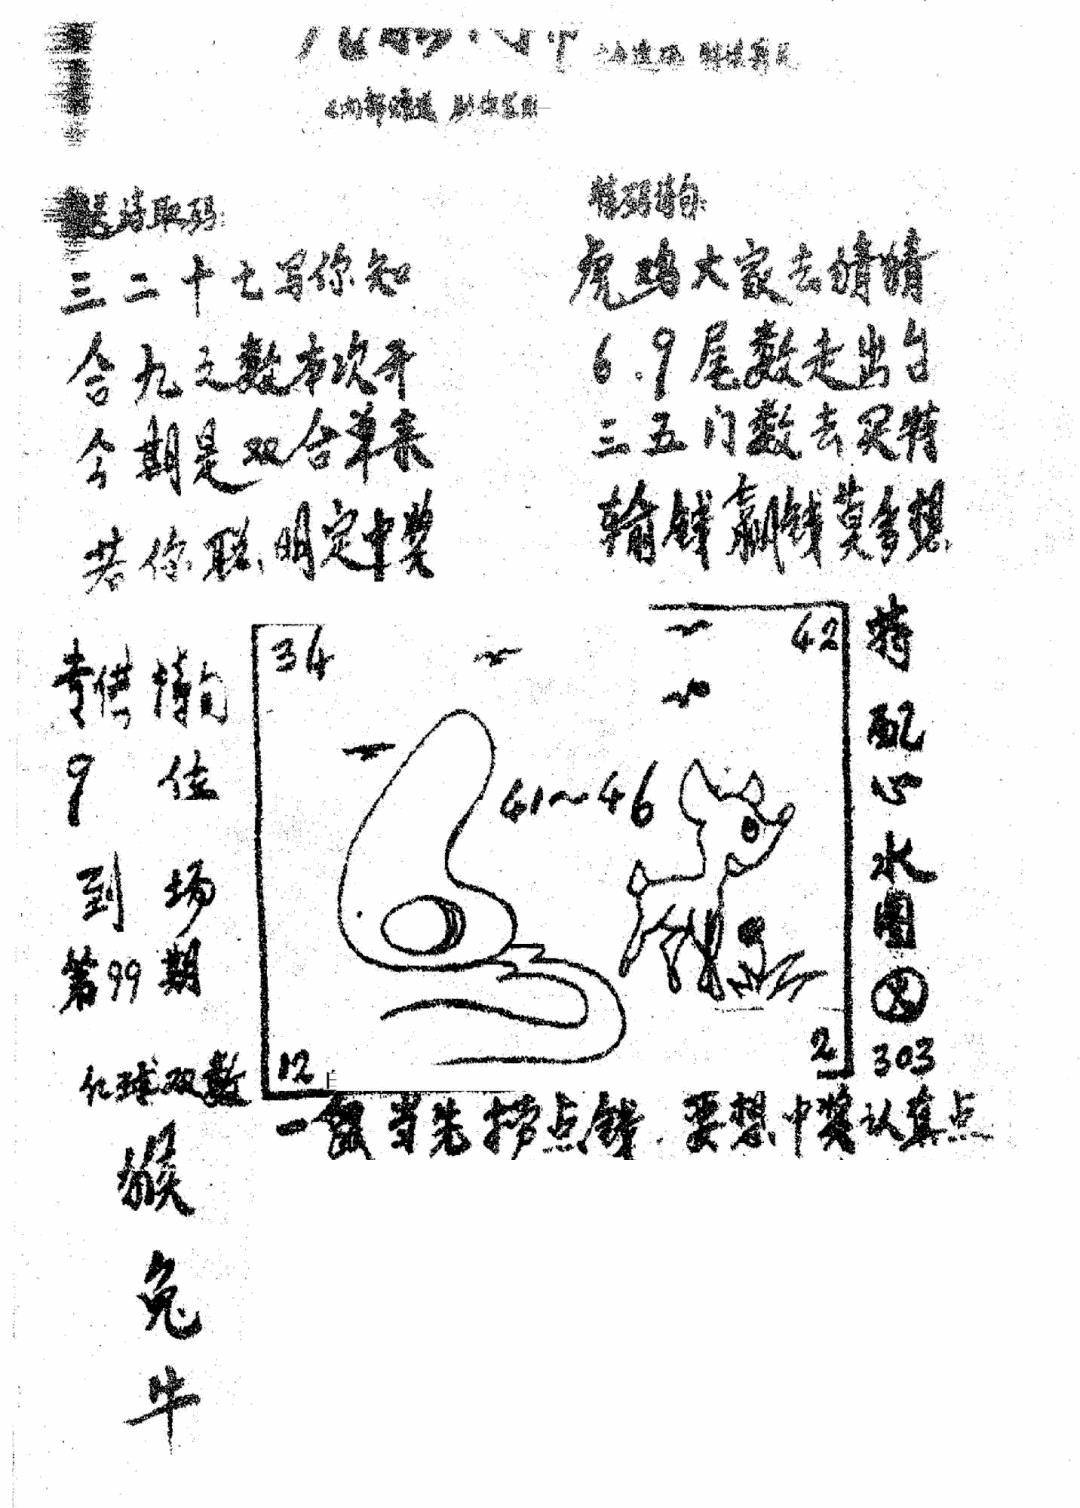 送诗取码:
三二十七写你知
合九之数本次开
今期是双合单来
若你聪明定中奖
特码诗句:
虎鸡大家去猜猜
6.9尾数走出台
三五门数去买特
输钱赢钱莫多想
专供
9
到
第99期
位
场
红球双数
猴
兔
牛
34
42
41～46
12
2
特配心水图
303
一鼠当先捞点钱.要想中奖认真点